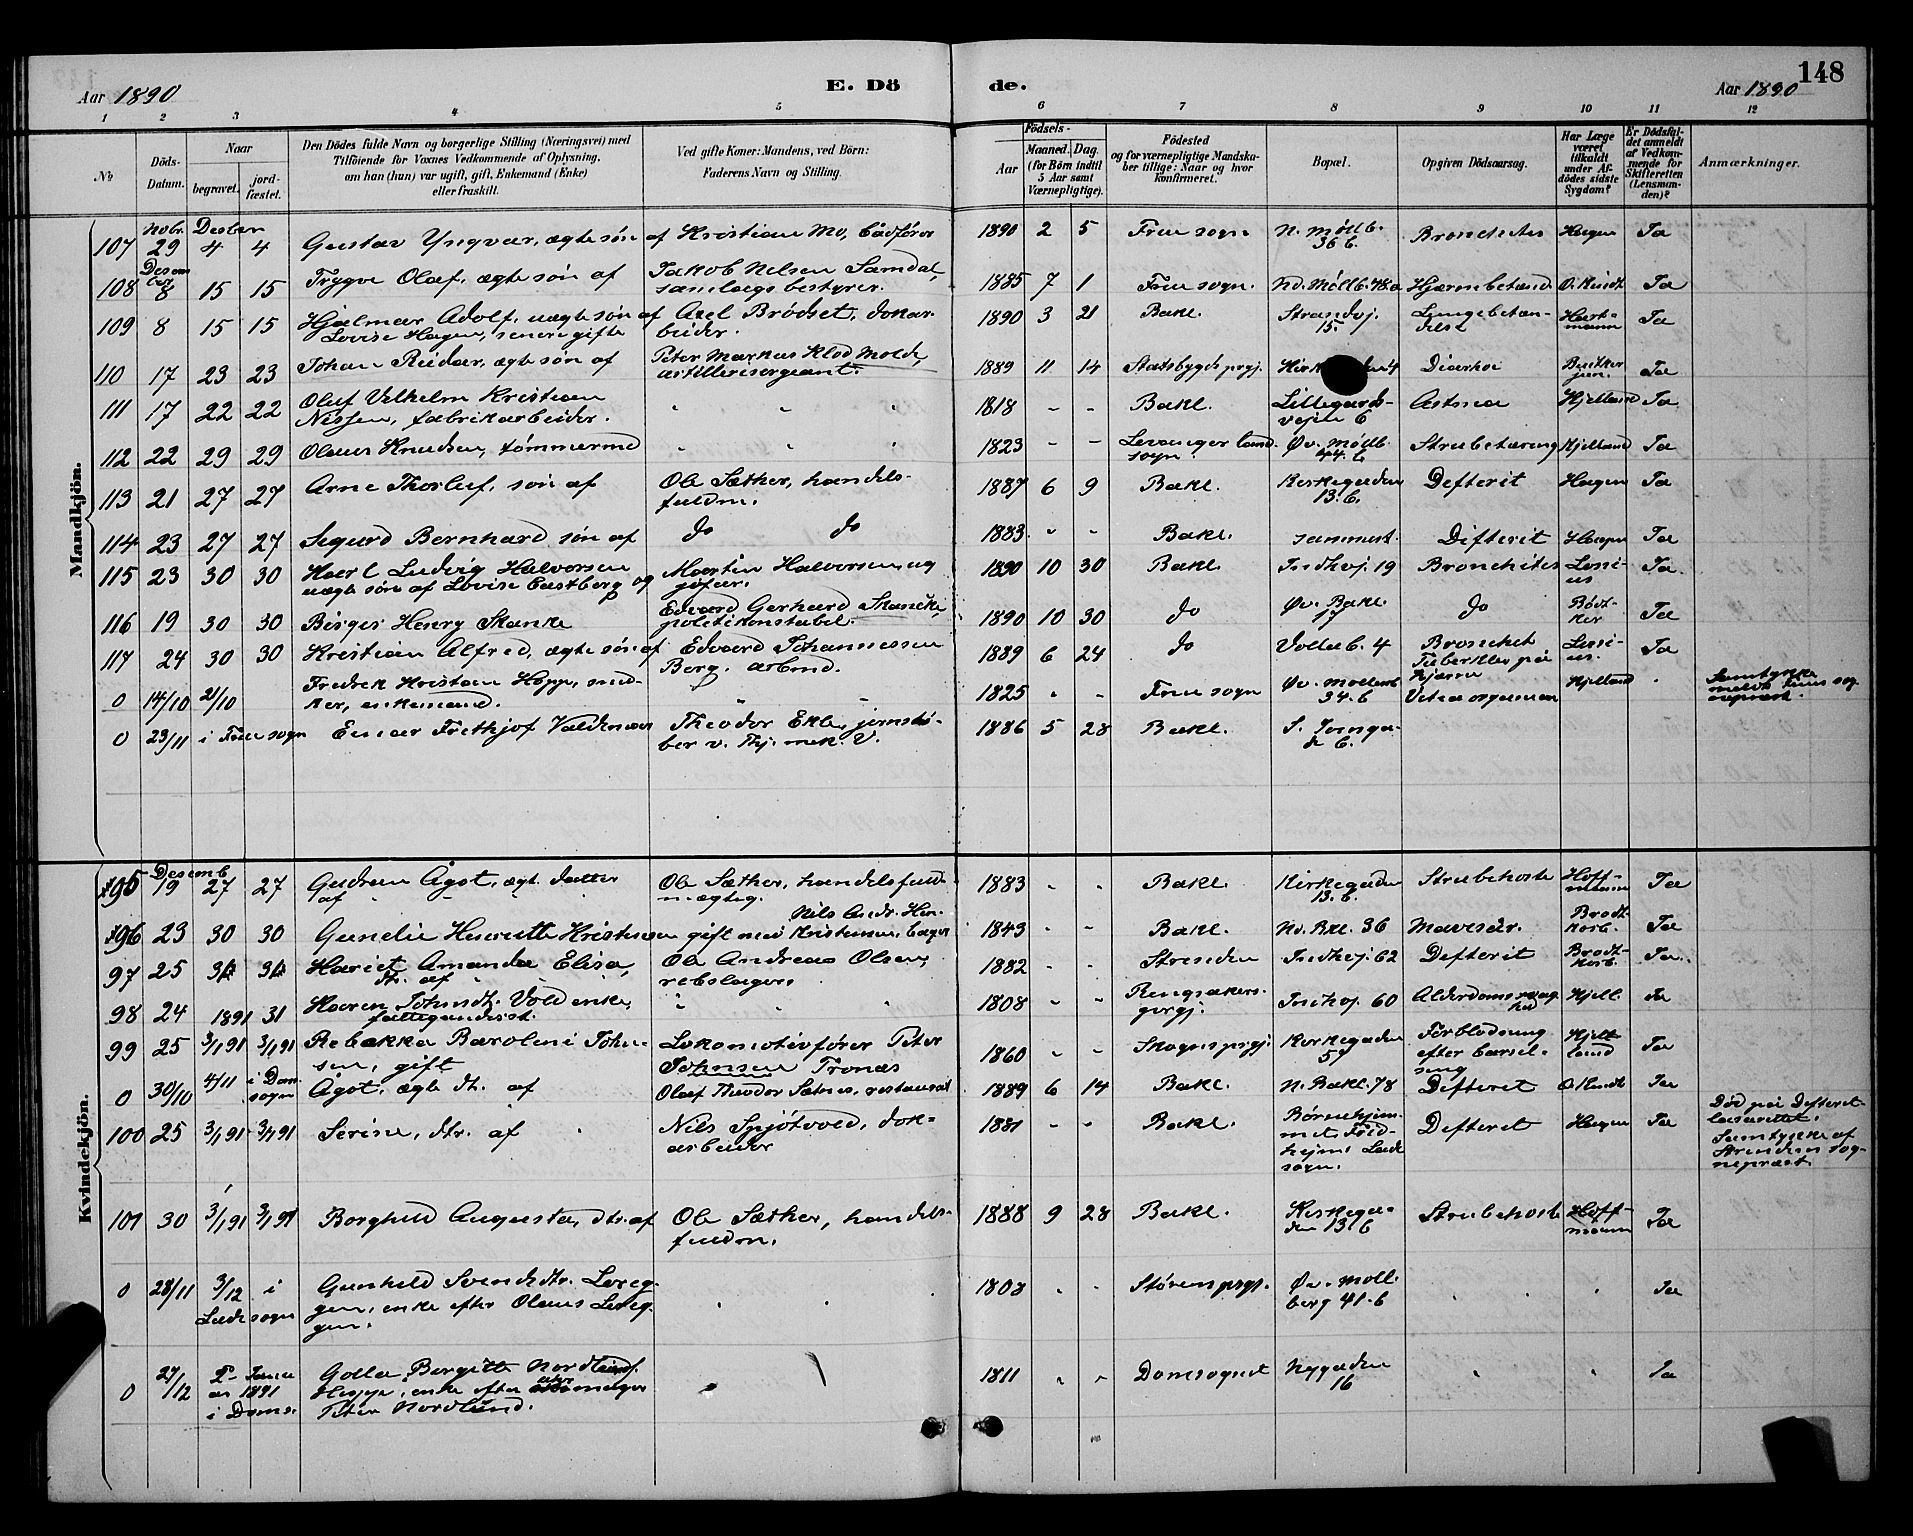 Aar 1890 E. Dö de. Aar 1890 148
1 2 3 4 5 6 7 8 9 10 11 12
No
Döds-Datum.
Naar
begravet. jordfæstet.
Den Dödes fulde Navn og borgerlige Stilling (Næringsvei) med
Tilföiende for Voxnes Vedkommende af Oplysning,
om han (hun) var ugift, gift, Enkemand (Enke)
eller fraskilt.
Ved gifte Koner: Mandens, ved Börn:
Faderens Navn og Stilling.
Födsels-
Aar Maaned. Dag.
(for Börn indtil
5 Aar samt
Værnepligtige).
Födested
og for værnepligtige Mandska-
ber tillige: Naar og hvor
konfirmeret.
Bopæl.
Opgiven Dödsaarsag.
Har Læge
været
tilkaldt
under Af-
dödes sidste
Sygdom?
Er Dödsfal-
det anmeldt
af Vedkom-
mende for
Skifteretten
(Lensman-
den)?
Anmærkninger.
Mandkjön.
Nobr. Desbr
107 29 4 4 Gustav Yngvar, ægte søn af Kristian Mo, bødfører 1890 2 5 Frue sogn N. Møllb. 36 b. Bronchites Hagen Ja
Desember
108 8 15 15 Trygve Olaf, ægte søn af Jakob Nelsen Samdal, samlagsbestyrer. 1885 7 1 Frue sogn. Nd. Møllb. 48a Hjærnebetænd. O. Lundt Ja
109 8 15 15 Hjalmar Adolf, uægte søn af Axel Brødset, dokar-
Lovise Hagen, senere gifte beider. 1890 3 21 Bakl. Strandvj. 15. Lungebetæn-delse Hartmann Ja
110 17 23 23 Johan Reidar, ægte søn af Peter Markus Klod Molde, artillerisergeant. 1889 11 14 Stadsbygds prgj. 4 Diarhoe Ja
111 17 22 22 Oluf Vilhelm Kristian
Nissen, fabrikarbeider. " " " 1818 - - Bakl. Lillegaards-vejen 6 Astma Hjelland Ja
112 22 29 29 Olaus Knudsen, tømmermd " " 1823 - - Levanger land-sogn. Øv. Møllb. 44. b Strubetæring Hjelland Ja
113 21 27 27 Arne Thorleif, søn af Ole Sæther, handels-fuldm. 1887 6 9 Bakl. Kirkegaden 13. b. Defterit Hagen Ja
114 23 27 27 Sigurd Bernhard søn af do do 1883. " - Bakl. sammest. Difterit Hagen Ja
115 23 30 30 Karl Ludvig Halvorsen
uægte søn af Lovise Eastberg og Martin Halvorsen 1890 10 30 Bakl. Indhvj. 19 Bronchites Lossius Ja
116 19 30 30 Birger Henry Skanke Edvard Gerhard Skancke, politikonstabel. 1890 10 30 do Øv. Bakl. 17 do Bødtker Ja
117 24 30 30 Kristian Alfred, ægte søn af Edvard Johannessen Berg. arbmd. 1889 6 24 do Voldab. 4 Bronchit Tuberkler på hjærne Lossius. Ja
0 14/10 21/10 Fredrik Kristian Hopp, sned-
ker, enkemand. 1825 " " Frue sogn Øv. Mollenb 34. b Hjelland " Samtykke
0 23/11 i Frue sogn Einar Frithjof Valdemar Theodor Ekle, jernstø-
ber v. Thj. mek. V. 1886 5 28 Bakl. b.
Kvindekjön.
Desemb
95 19 27 27 Gudrun Agot, ægt. datter
af " " " Ole Sæther, handelsfuld-mægtig. 1883 - - Bakl. Kirkegaden 13. b. Strubehoste Hoffmann Ja
96 23 30 30 gift med Nils Andr. Kristensen, 1843 - - Bakl. Nd. Bkl. 36 Mavesår. Brodtkorb. Ja
97 25 Hariet Amanda Elisa,
dtr. af " Ole Andreas Olsen, rebslager. 1882 - - Strinden Indhvj. 62 Defterit Brodtkorb. Ja.
98 24 1891 31 Karen Johnsdt. Vold enke,
fattigunderst. " " 1808 - " Ringsakers prgj. Indhvj. 60 Alderdomssvaghed Hjell. Ja
99 25 3/1 91 3/1 91 Rebekka Barolini John-
sen, gift Lokomotivfører Peter Johnsen Tronæs 1860 - - Skogns prgj. Kirkegaden 59 Forblødning efter barsel-seng Hjelland Ja
0 30/10 4/11 i Dom sogn Agot, ægte dt. af Olaf Theodor 1889 6 14 Bakl. N. Bakl. 78 Defteret O. Lundt Ja
100 25 3/1 91 3/1 91 Serine, dtr. af " Nils Spjøtvold, dok-arbeider 1881 - - Bakl. Børnehjem-met Frid-hejm Lade sogn. Defteret Hagen Ja Død på Defteret-lasarettet. Samtykke af Strindens sog-nepræst.
101 30 3/1 91 3/1 91 Borghild Augusta, dtr. af Ole Sæther, handels-fuldm. 1888 9 28 Bakl. Kirkega-den 13. b Strubehoste Hoffmann Ja
0 28/11 3/12 i
Lade sogn Gunhild Svendsdtr. Løreg-
gen, enke efter Olaus Løreg-
gen. " " 1808 " " Størens prgj. Øv. Moll-berg 41. b " " Ja
0 27/12 2- Janu
ar 1891
i Doms. Bergitte Nordlund f.
Hopp, enke efter
Peter Nordlund. 1811 " - Domsognet Nygaden 16 " " Ja